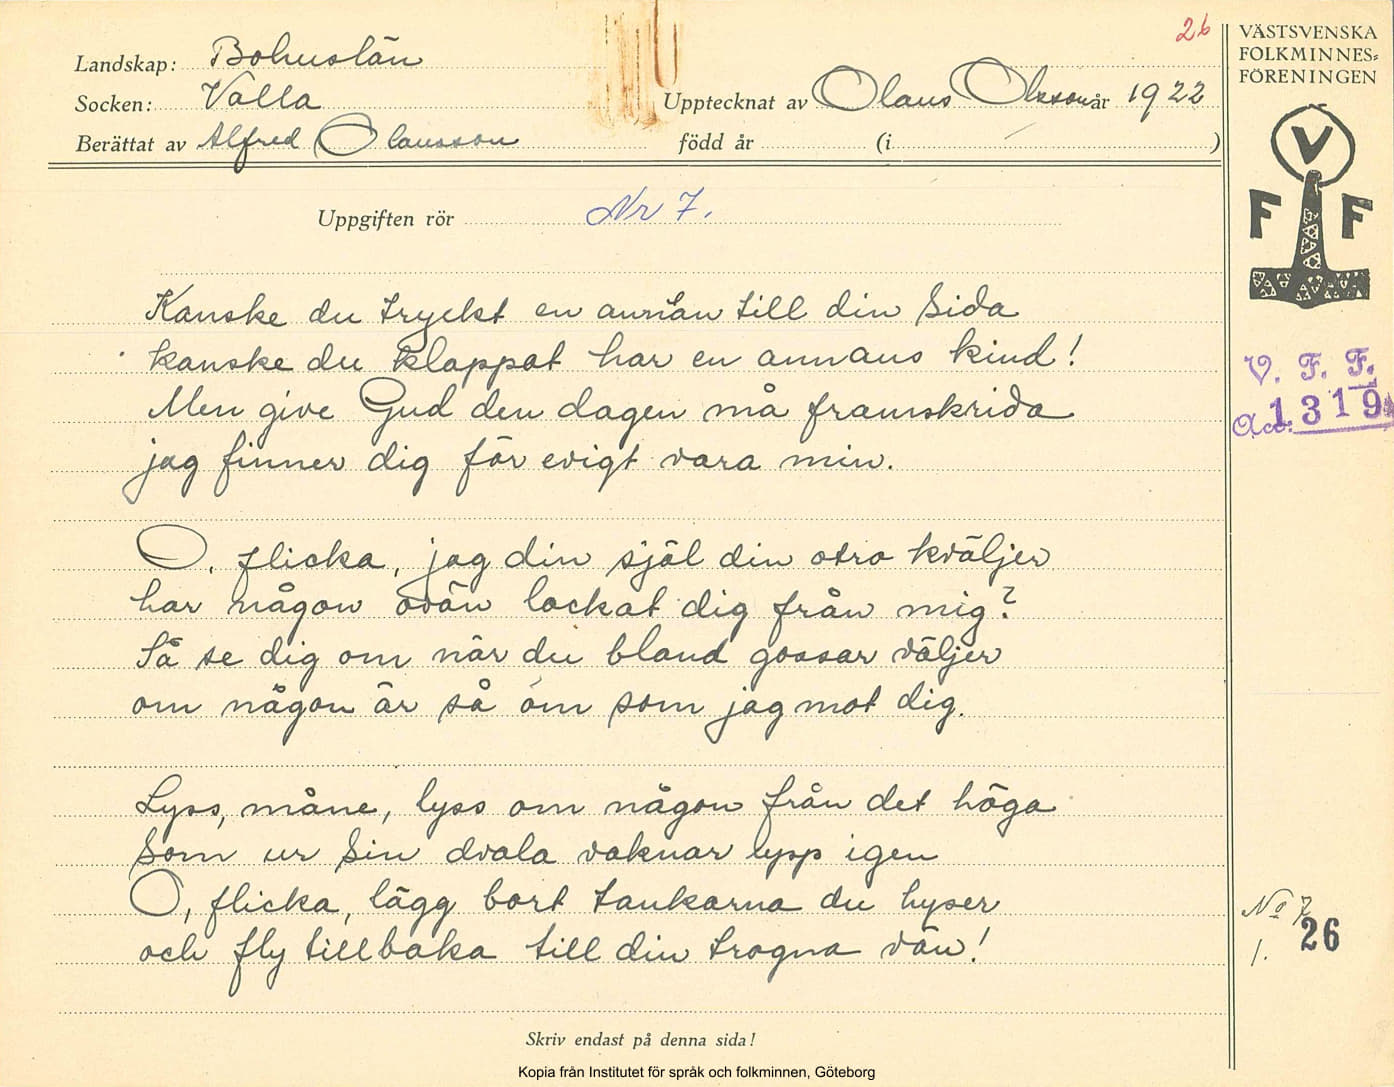 26
Landskap: Bohuslän
Socken: Valla
Upptecknat av Olaus Olsson år 1922
Berättat av Alfred Olausson
född år (i )
Uppgiften rör Nr 7.
Kanske du tryckt en annan till din sida
kanske du klappat har en annans kind!
Men give Gud den dagen må framskrida
jag finner dig för evigt vara min.
O, flicka, jag din själ din otro kväljer
har någon ovän lockat dig från mig?
Så se dig om när du bland gossar väljer
om någon är så öm som jag mot dig.
Lyss, måne, lyss om någon från det höga
Som ur sin dvala vaknar lypp igen
O, flicka, lägg bort tankarna du hyser
och fly tillbaka till din trogna vän!
Skriv endast på denna sida!
Kopia från Institutet för språk och folkminnen, Göteborg
VÄSTSVENSKA
FOLKMINNES-
FÖRENINGEN
V
F F
V. F. F.
Acc. 1319
No 7
1. 26